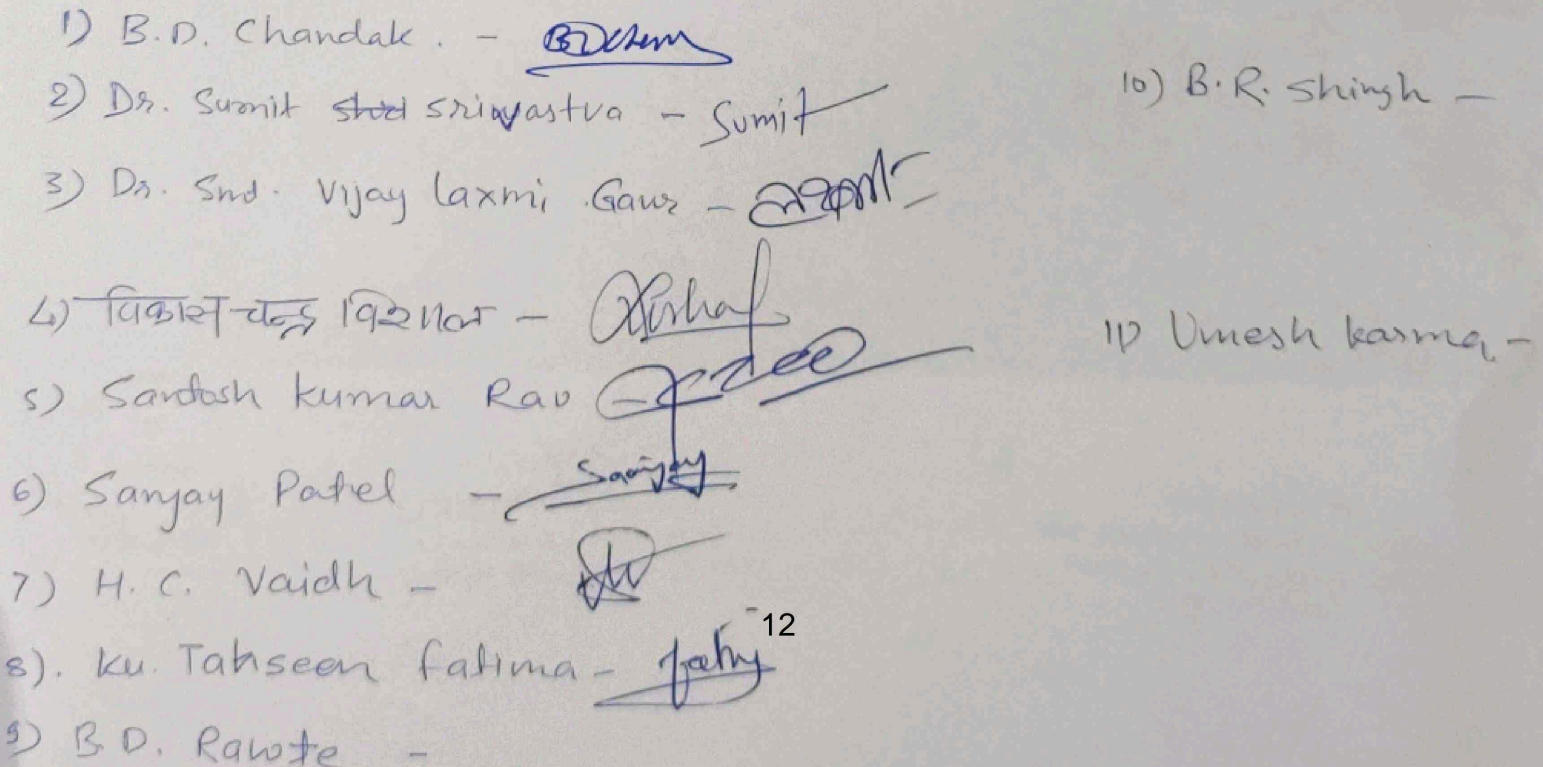 1) B.D. Chandak. -
2) Dr. Sumit srivastva - Sumit
3) Dr. Smt. Vijay laxmi Gaur -
4) विकास चन्द्र विशाल -
5) Santosh kumar Rav
6) Sanjay Patel - Sanjay
7) H. C. Vaidh -
12
8). Ku. Tahseen fatima -
9) B.D. Rawte -
10) B.R. Shingh -
11) Umesh karma, -